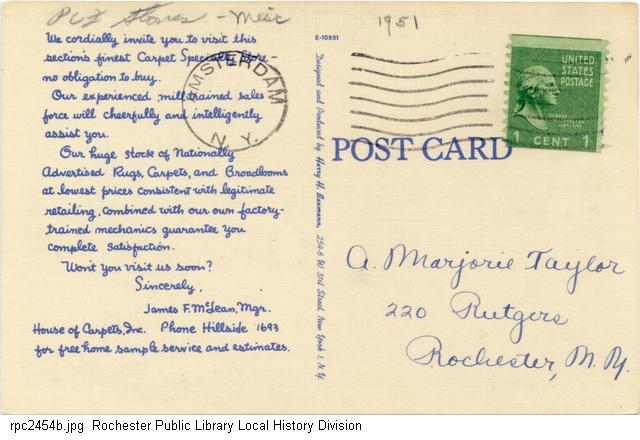 PCF Stores - Misc
1951
We cordially invite you to visit this
section's finest Carpet Specialty Store -
no obligation to buy.
Our experienced, mill-trained sales
force will cheerfully and intelligently
assist you.
Our huge stock of Nationally
Advertised Rugs, Carpets, and Broadlooms
at lowest prices consistent with legitimate
retailing, combined with our own factory-
trained mechanics guarantee you
complete satisfaction.
Won't you visit us soon?
Sincerely,
James F. McLean, Mgr.
House of Carpets, Inc. Phone Hillside 1693
for free home sample service and estimates.
AMSTERDAM
N. Y.
E-10931
Designed and Produced by Harry H. Baumann, 254-6 W. 31st Street, New York 1, N.Y.
UNITED
STATES
POSTAGE
1 CENT 1
POST CARD
A. Marjorie Taylor
220 Rutgers
Rochester, N.Y.
rpc2454b.jpg Rochester Public Library Local History Division